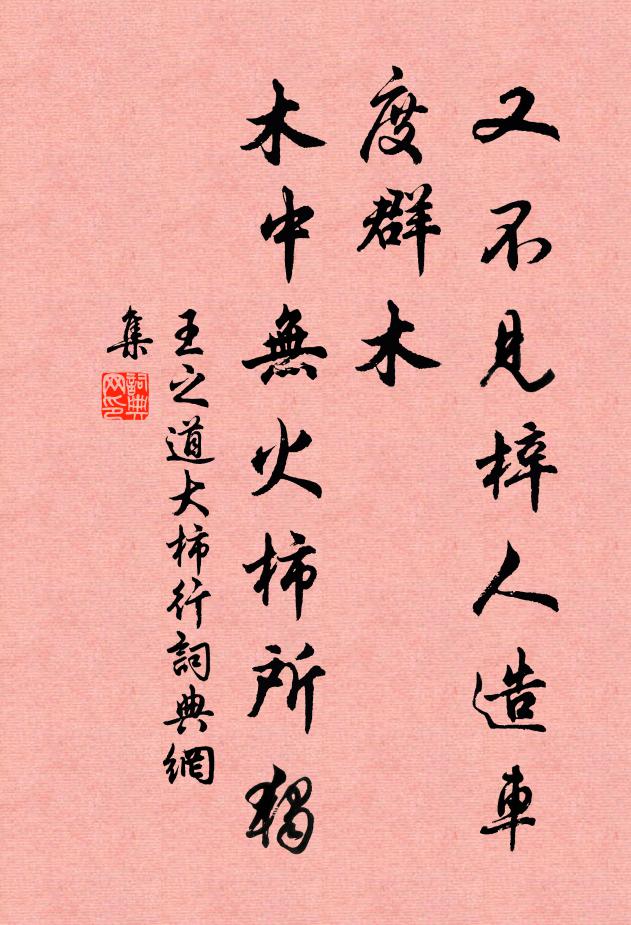 又不見梓人造車
度群木
木中無火柿所獨
王之道大柿行詞典網
集
詞典
网印